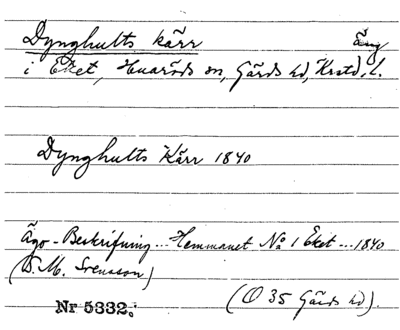 Dynghults kärr Äng
i Eket, Huaröds sn, Gärds hd, Krstd. l.
Dynghults Kärr 1840
Ägo-Beskrifning... Hemmanet No 1 Eket... 1840
(S. M. Svensson)
Nr 5332.
(O 35 Gärds hd).